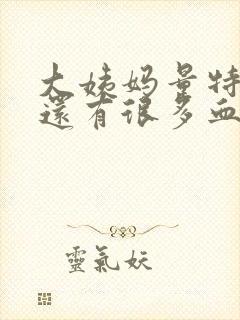 大姨妈量特
還有很多血
靈氣妖